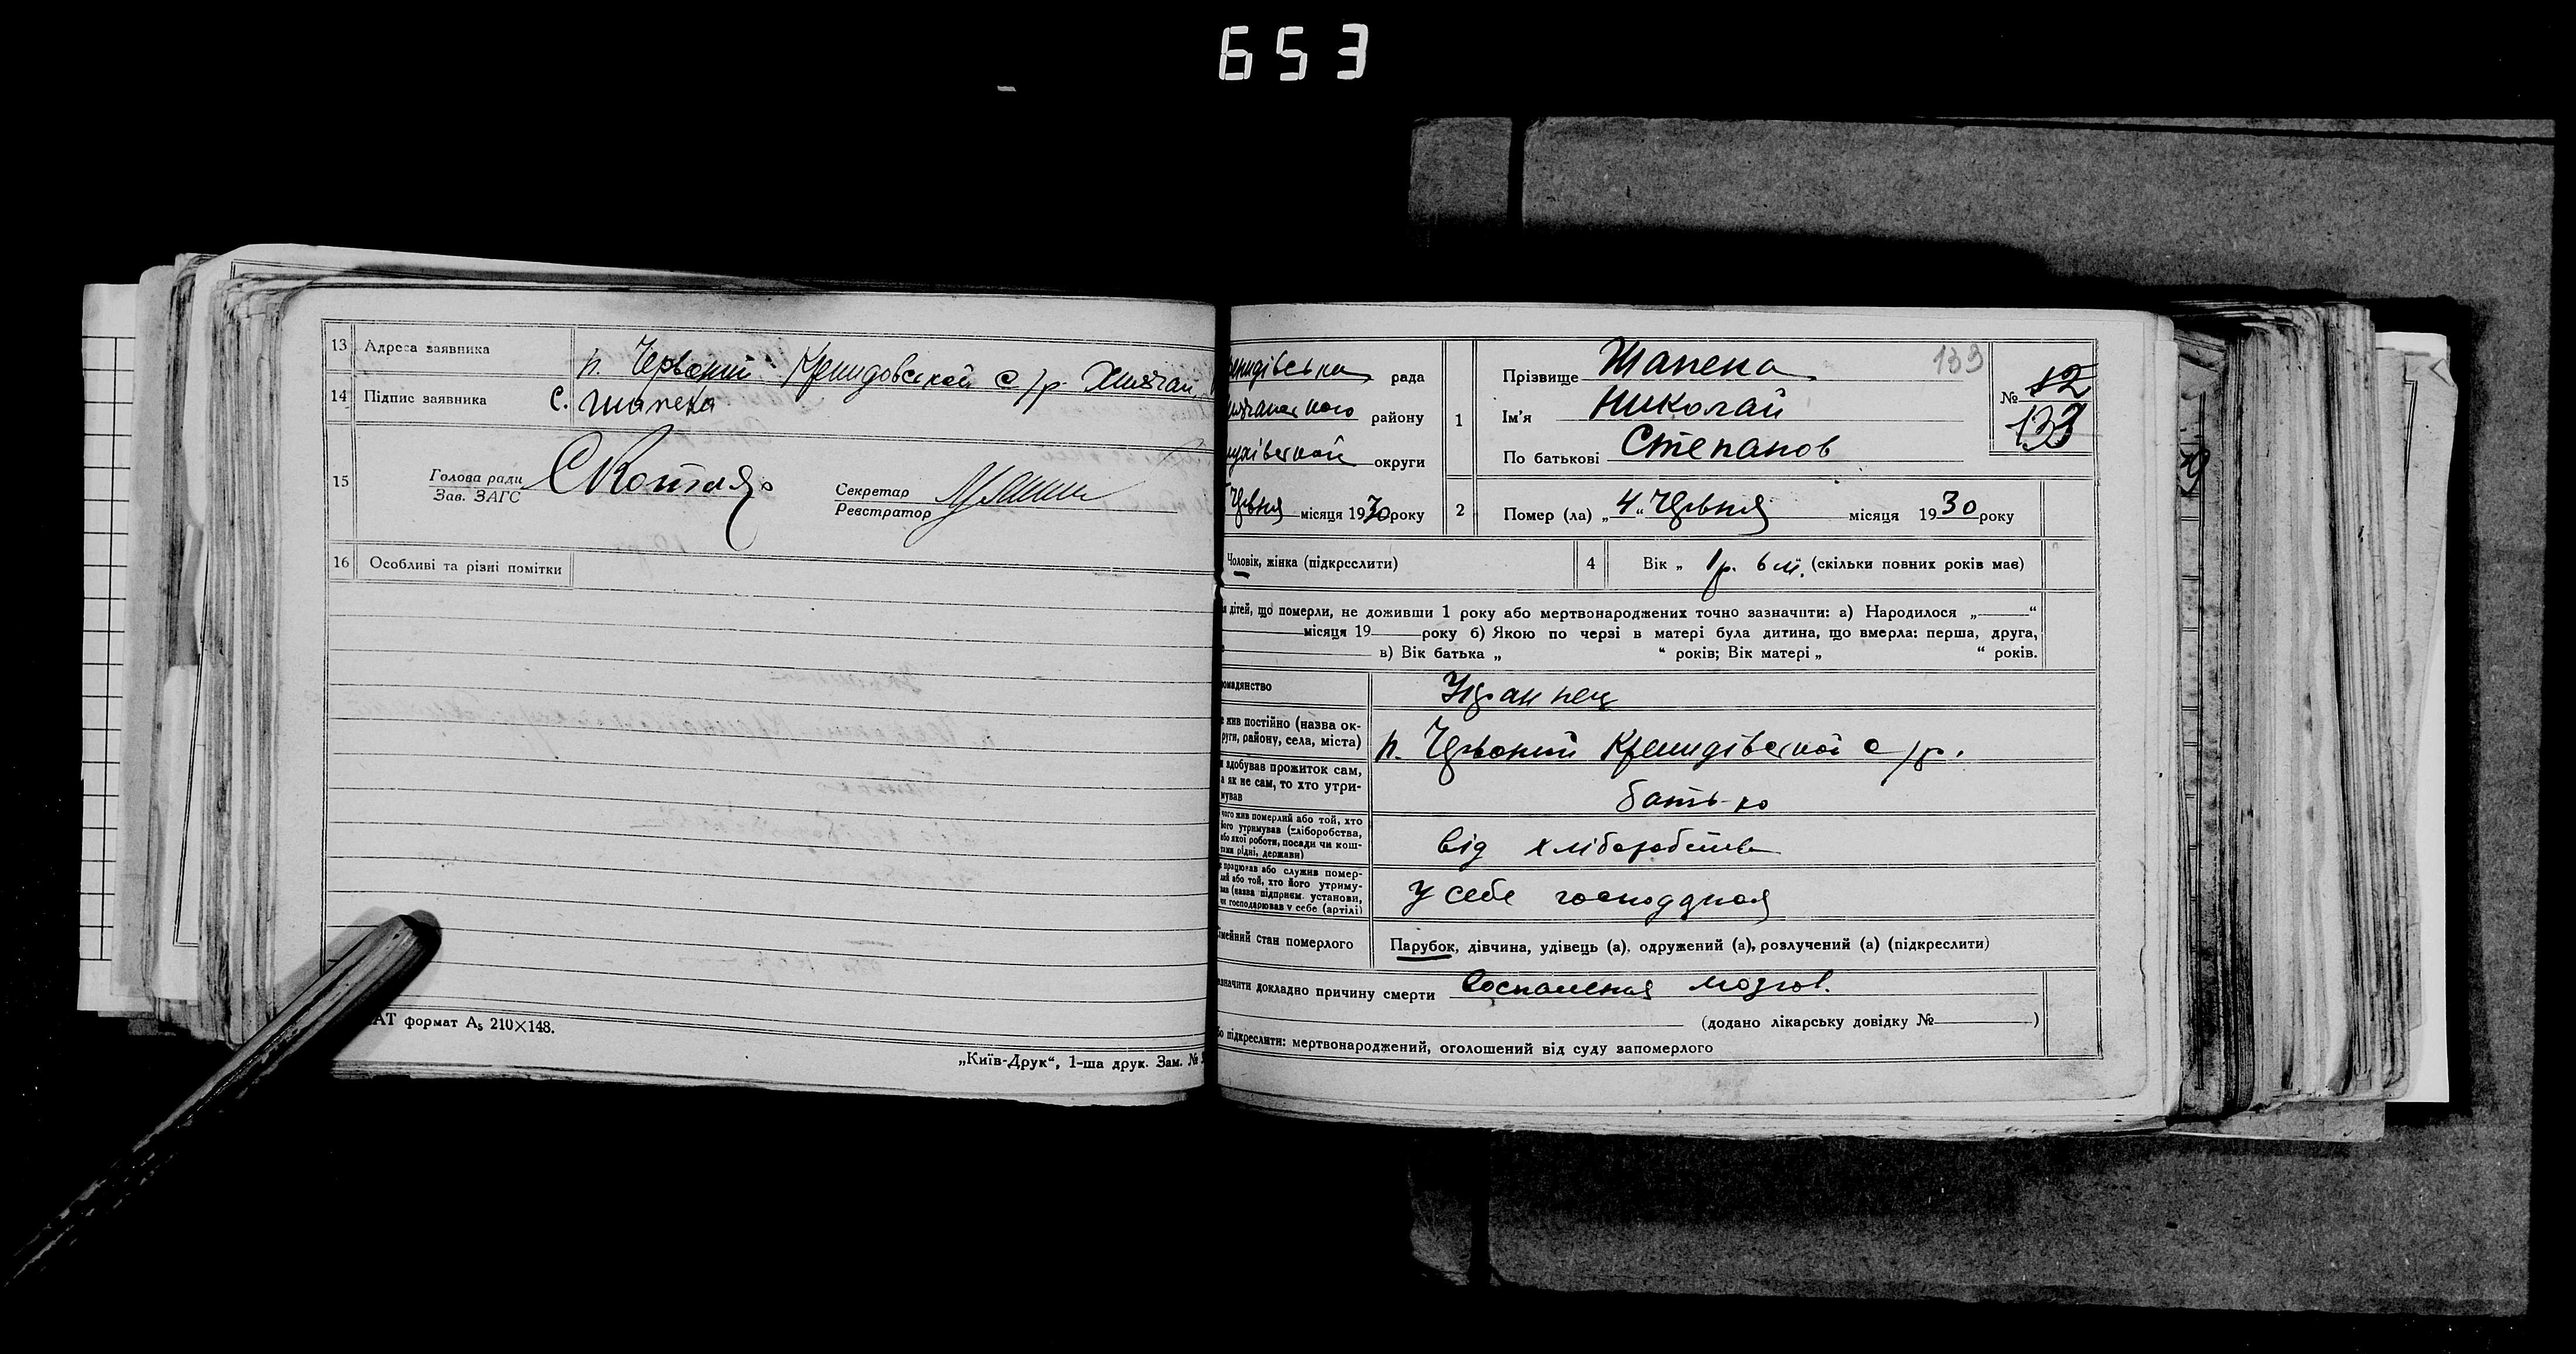 653
13 Адреса заявника п. Червоний Кренидовской с/р. Хильчан,
14 Підпис заявника С. Шапека
15 Голова ради
Зав. ЗАГС
Секретар
Реєстратор
16 Особливі та різні помітки
АТ формат А5 210×148.
„Київ-Друк“, 1-ша друк. Зам. №
енидівська рада
району
округи
Червня місяця 1930 року
1 Прізвище Шапека 133
Ім'я Николай
По батькові Степанов
№ 12
133
2 Помер (ла) „4“ Червня місяця 1930 року
Чоловік, жінка (підкреслити)
4 Вік „ 1 р. 6 м. (скільки повних років має)
я дітей, що померли, не доживши 1 року або мертвонароджених точно зазначити: а) Народилося „ “
місяця 19 року б) Якою по черзі в матері була дитина, що вмерла: перша, друга,
в) Вік батька „ “ років; Вік матері „ “ років.
омадянство Украинец
е жив постійно (назва ок-
руги, району, села, міста) п. Червоний Кренидівської с/р.
и здобував прожиток сам,
а як не сам, то хто утри-
мував батько
чого жив померлий або той, хто
його утримував (хліборобства,
або якої роботи, посади чи кош-
тами рідні, держави) від хліборобства
е працював або служив помер-
лий або той, хто його утриму-
вав (назва підприєм. установи,
чи господарював у себе (артілі) у себе
імейний стан померлого Парубок, дівчина, удівець (а), одружений (а), розлучений (а) (підкреслити)
азначити докладно причину смерти Воспаления мозгов.
(додано лікарську довідку № )
бо підкреслити: мертвонароджений, оголошений від суду запомерлого